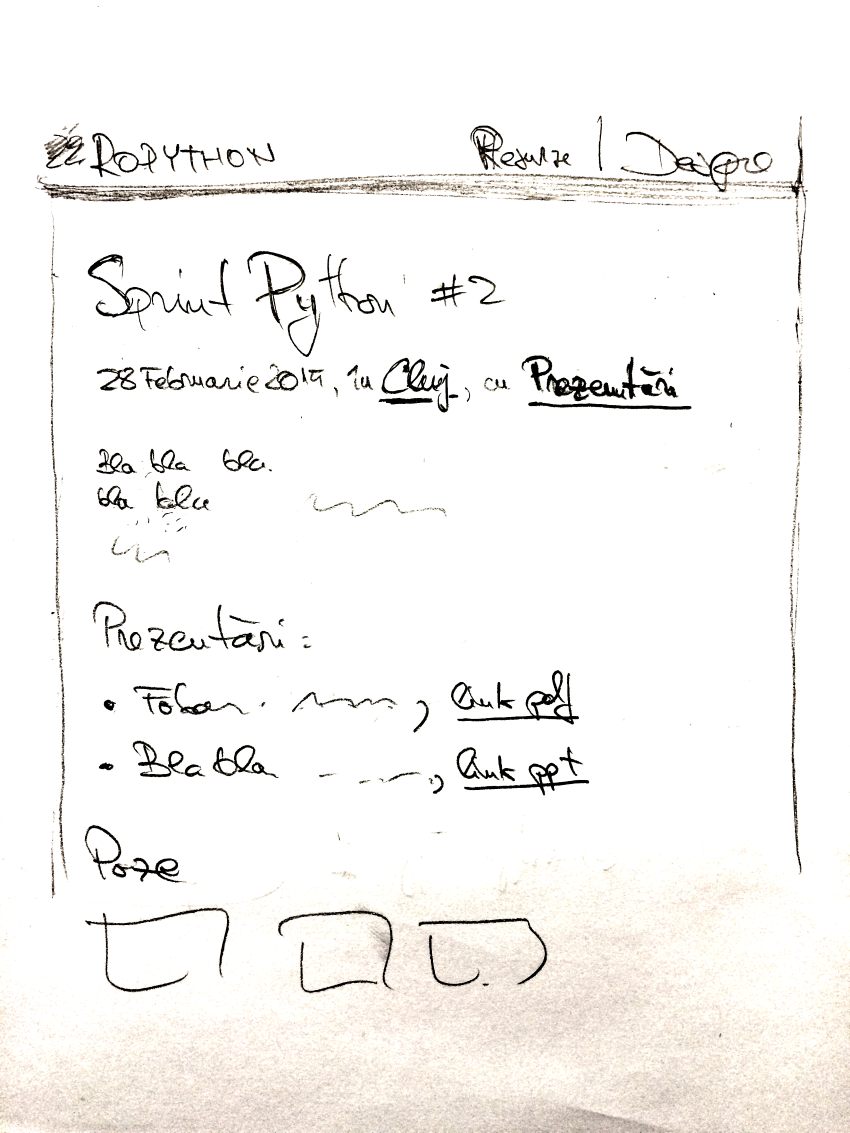 ROPYTHON Resurse | Despre
Sprint Python #2
28 Februarie 2015, în Cluj, cu Prezentări
Bla bla bla.
bla bla
Prezentări:
• , link pdf
• Bla bla , link ppt
Poze